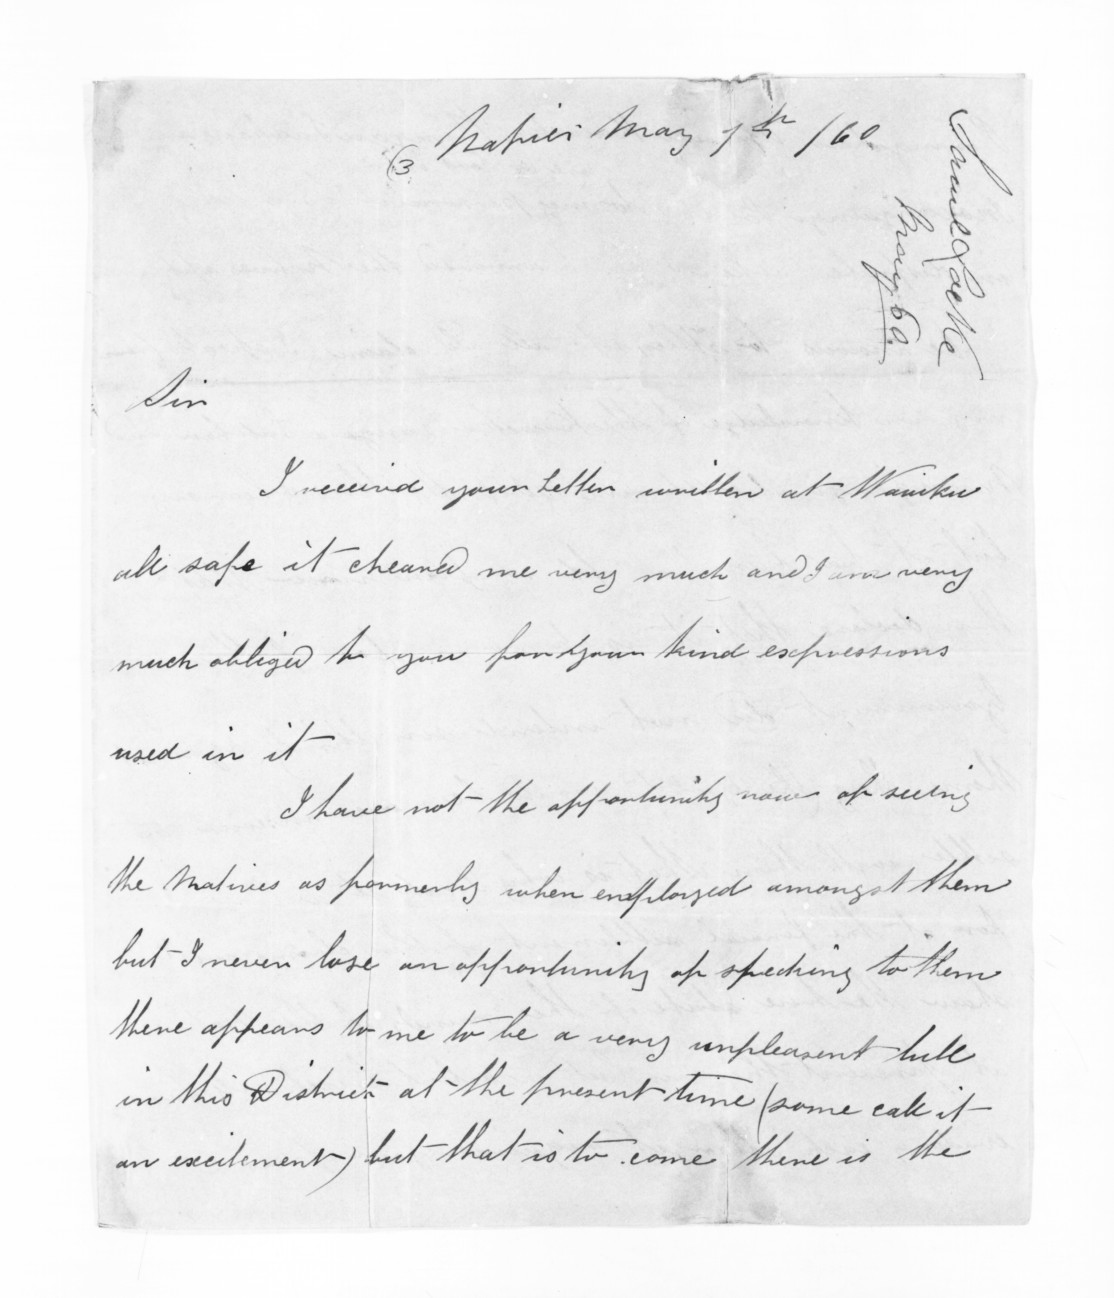 Napier May 7th /60
(3
Samuel Locke
May 60.
Sir
I receivd your Letter written at Waiuku
all safe it cheared me very much and I am very
much obliged to you for your kind expressions
used in it
I have not the opportunity now of seeing
the Natives as formerly when employed amongst them
but I never lose an opportunity of specking to them
there appears to me to be a very unpleasent lull
in this District at the present time (some call it
an excitement) but that is to come there is the